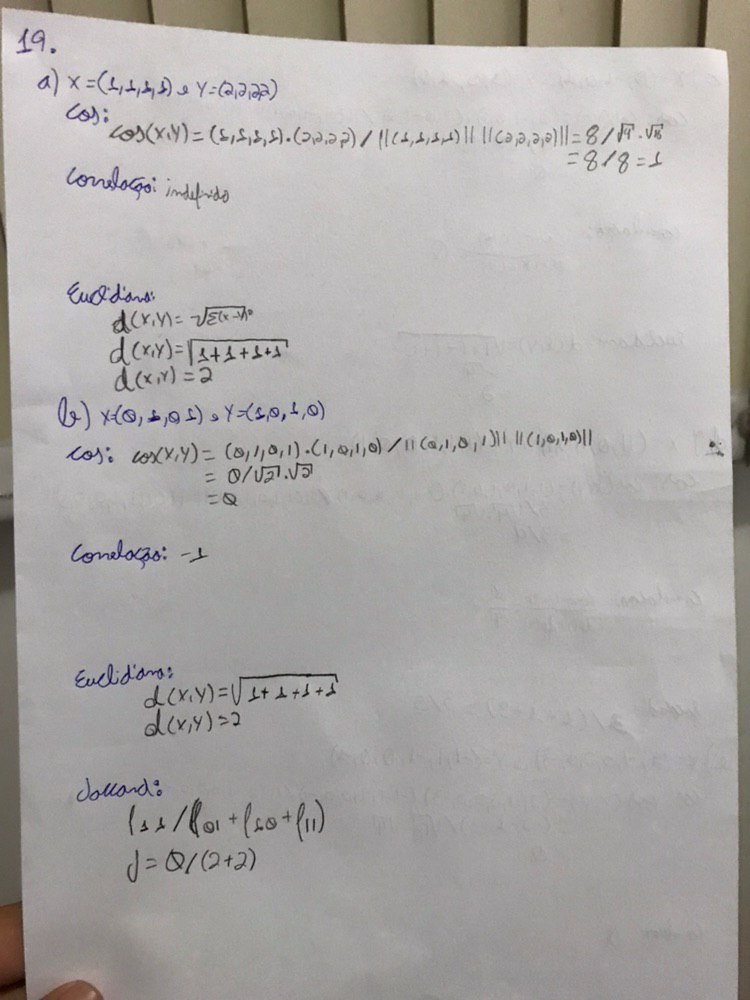 19.
a) X=(1,1,1,1) e Y=(2,2,2,2)
Cos:
cos(X,Y)=(1,1,1,1).(2,2,2,2)/||(1,1,1,1)|| ||(2,2,2,2)||=8/√4.√16
=8/8=1
Correlação: indefinido
Euclidiana:
d(X,Y)=√Σ(x-y)²
d(X,Y)=√1+1+1+1
d(X,Y)=2
b) X=(0,1,0,1) e Y=(1,0,1,0)
Cos: cos(X,Y)=(0,1,0,1).(1,0,1,0)/||(0,1,0,1)|| ||(1,0,1,0)||
= 0/√2.√2
=0
Correlação: -1
Euclidiana:
d(X,Y)=√1+1+1+1
d(X,Y)=2
Jaccard:
f11/(f01+f10+f11)
J=0/(2+2)